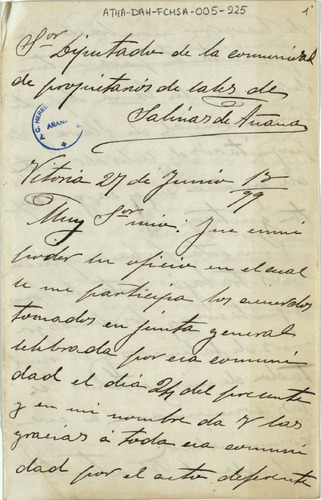 ATHA-DAH-FCHSA-005-225
1
Sor Diputado de la comunidad
de propietarios de sales de
Salinas de Añana
ARANA
Vitoria 27 de Junio
99
Muy Sor mio: Fue en mi
poder su oficio en el cual
se me participa los acuerdos
tomados en junta general
celebrada por esa comuni
dad el dia 24 del presente
y en mi nombre da V las
gracias á toda esa comuni
dad por el acto deferente